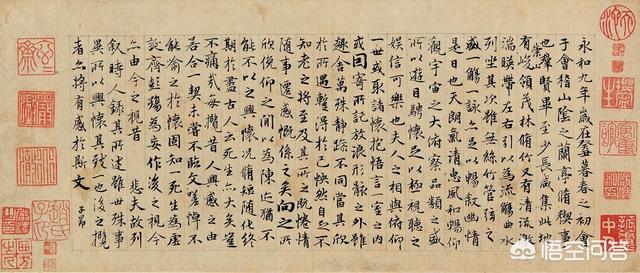 永和九年歲在癸丑暮春之初會
于會稽山陰之蘭亭脩稧事
也羣賢畢至少長咸集此地
有崇山峻領茂林脩竹又有清流激
湍暎帶左右引以為流觴曲水
列坐其次雖無絲竹管弦之
盛一觴一詠亦足以暢敘幽情
是日也天朗氣清惠風和暢仰
觀宇宙之大俯察品類之盛
所以遊目騁懷足以極視聽之
娛信可樂也夫人之相與俯仰
一世或取諸懷抱悟言一室之內
或因寄所託放浪形骸之外雖
趣舍萬殊靜躁不同當其欣
於所遇暫得於己怏然自足不
知老之將至及其所之既惓情
隨事遷感慨係之矣向之所
欣俛仰之閒以為陳迹猶不
能不以之興懷況脩短隨化終
期於盡古人云死生亦大矣豈
不痛哉每攬昔人興感之由
若合一契未嘗不臨文嗟悼不
能喻之於懷固知一死生為虛
誕齊彭殤為妄作後之視今
亦由今之視昔 悲夫故列
敘時人錄其所述雖世殊事
異所以興懷其致一也後之攬
者亦將有感於斯文
子昂
悟空问答